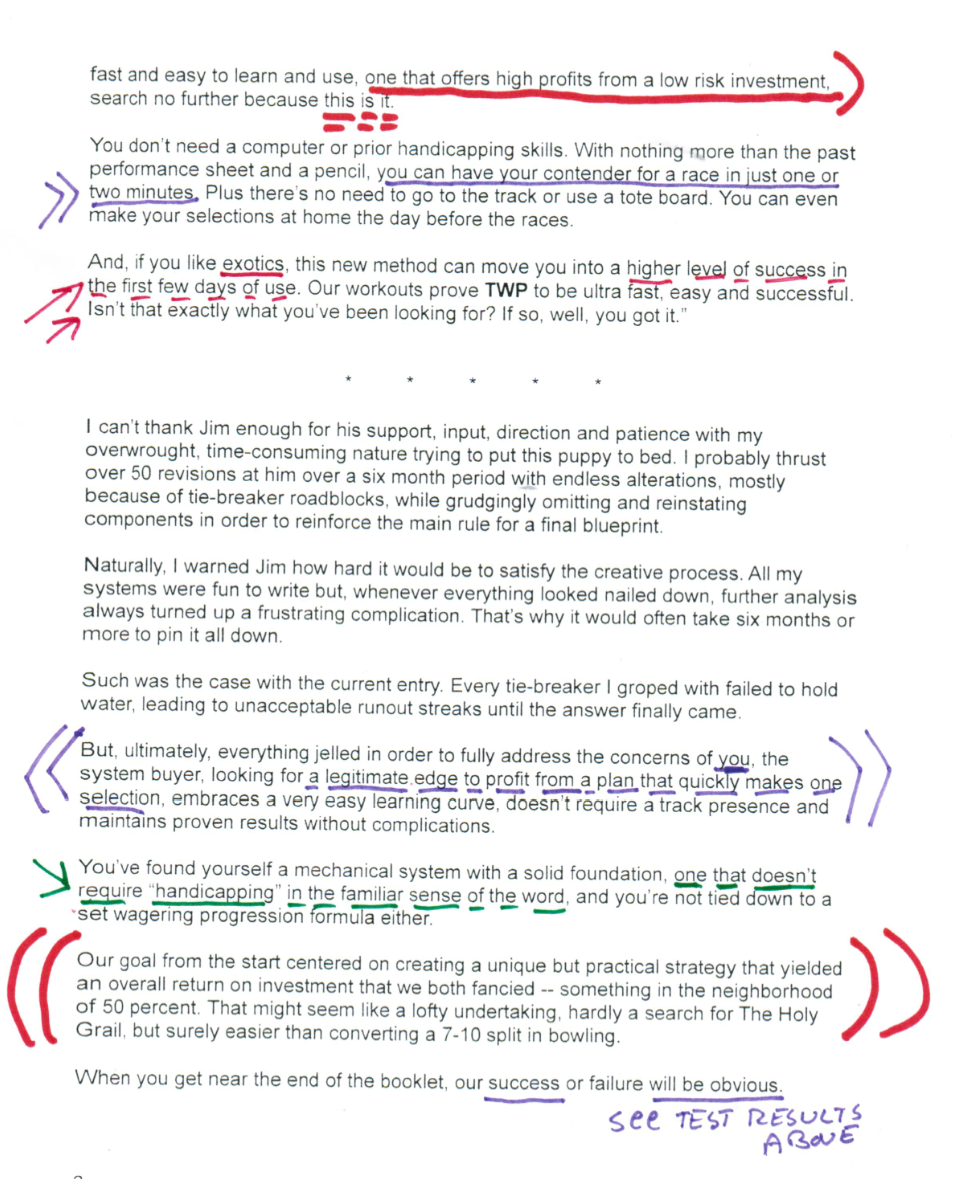 fast and easy to learn and use, one that offers high profits from a low risk investment,
search no further because this is it.
You don't need a computer or prior handicapping skills. With nothing more than the past
performance sheet and a pencil, you can have your contender for a race in just one or
two minutes. Plus there's no need to go to the track or use a tote board. You can even
make your selections at home the day before the races.
And, if you like exotics, this new method can move you into a higher level of success in
the first few days of use. Our workouts prove TWP to be ultra fast, easy and successful.
Isn't that exactly what you've been looking for? If so, well, you got it."
* * * * *
I can't thank Jim enough for his support, input, direction and patience with my
overwrought, time-consuming nature trying to put this puppy to bed. I probably thrust
over 50 revisions at him over a six month period with endless alterations, mostly
because of tie-breaker roadblocks, while grudgingly omitting and reinstating
components in order to reinforce the main rule for a final blueprint.
Naturally, I warned Jim how hard it would be to satisfy the creative process. All my
systems were fun to write but, whenever everything looked nailed down, further analysis
always turned up a frustrating complication. That's why it would often take six months or
more to pin it all down.
Such was the case with the current entry. Every tie-breaker I groped with failed to hold
water, leading to unacceptable runout streaks until the answer finally came.
But, ultimately, everything jelled in order to fully address the concerns of you, the
system buyer, looking for a legitimate edge to profit from a plan that quickly makes one
selection, embraces a very easy learning curve, doesn't require a track presence and
maintains proven results without complications.
You've found yourself a mechanical system with a solid foundation, one that doesn't
require "handicapping" in the familiar sense of the word, and you're not tied down to a
set wagering progression formula either.
Our goal from the start centered on creating a unique but practical strategy that yielded
an overall return on investment that we both fancied -- something in the neighborhood
of 50 percent. That might seem like a lofty undertaking, hardly a search for The Holy
Grail, but surely easier than converting a 7-10 split in bowling.
When you get near the end of the booklet, our success or failure will be obvious.
SEE TEST RESULTS
ABOVE